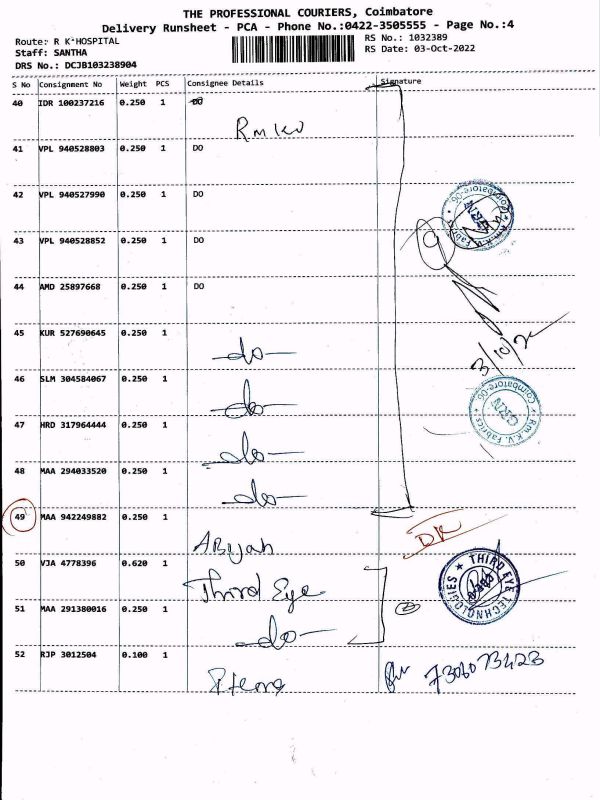 THE PROFESSIONAL COURIERS, Coimbatore
Delivery Runsheet - PCA - Phone No.:0422-3505555 - Page No.:4
Route: R K HOSPITAL
Staff: SANTHA
DRS No.: DCJB103238904
RS No.: 1032389
RS Date: 03-Oct-2022
S No Consignment No Weight PCS Consignee Details Signature
40 IDR 100237216 0.250 1 DO
RmKV
41 VPL 940528803 0.250 1 DO
42 VPL 940527990 0.250 1 DO
43 VPL 940528852 0.250 1 DO
44 AMD 25897668 0.250 1 DO
45 KUR 527690645 0.250 1
-do-
46 SLM 304584067 0.250 1
-do-
47 HRD 317964444 0.250 1
-do-
48 MAA 294033520 0.250 1
-do-
49 MAA 942249882 0.250 1
50 VJA 4778396 0.620 1
Third Eye
51 MAA 291380016 0.250 1
-do-
52 RJP 3012504 0.100 1
Coimbatore-06
Rm.K.V. Fabrics
3/10/2
Coimbatore-06.
Rm.K.V. Fabrics
THIRD EYE TECHNOLOGIES